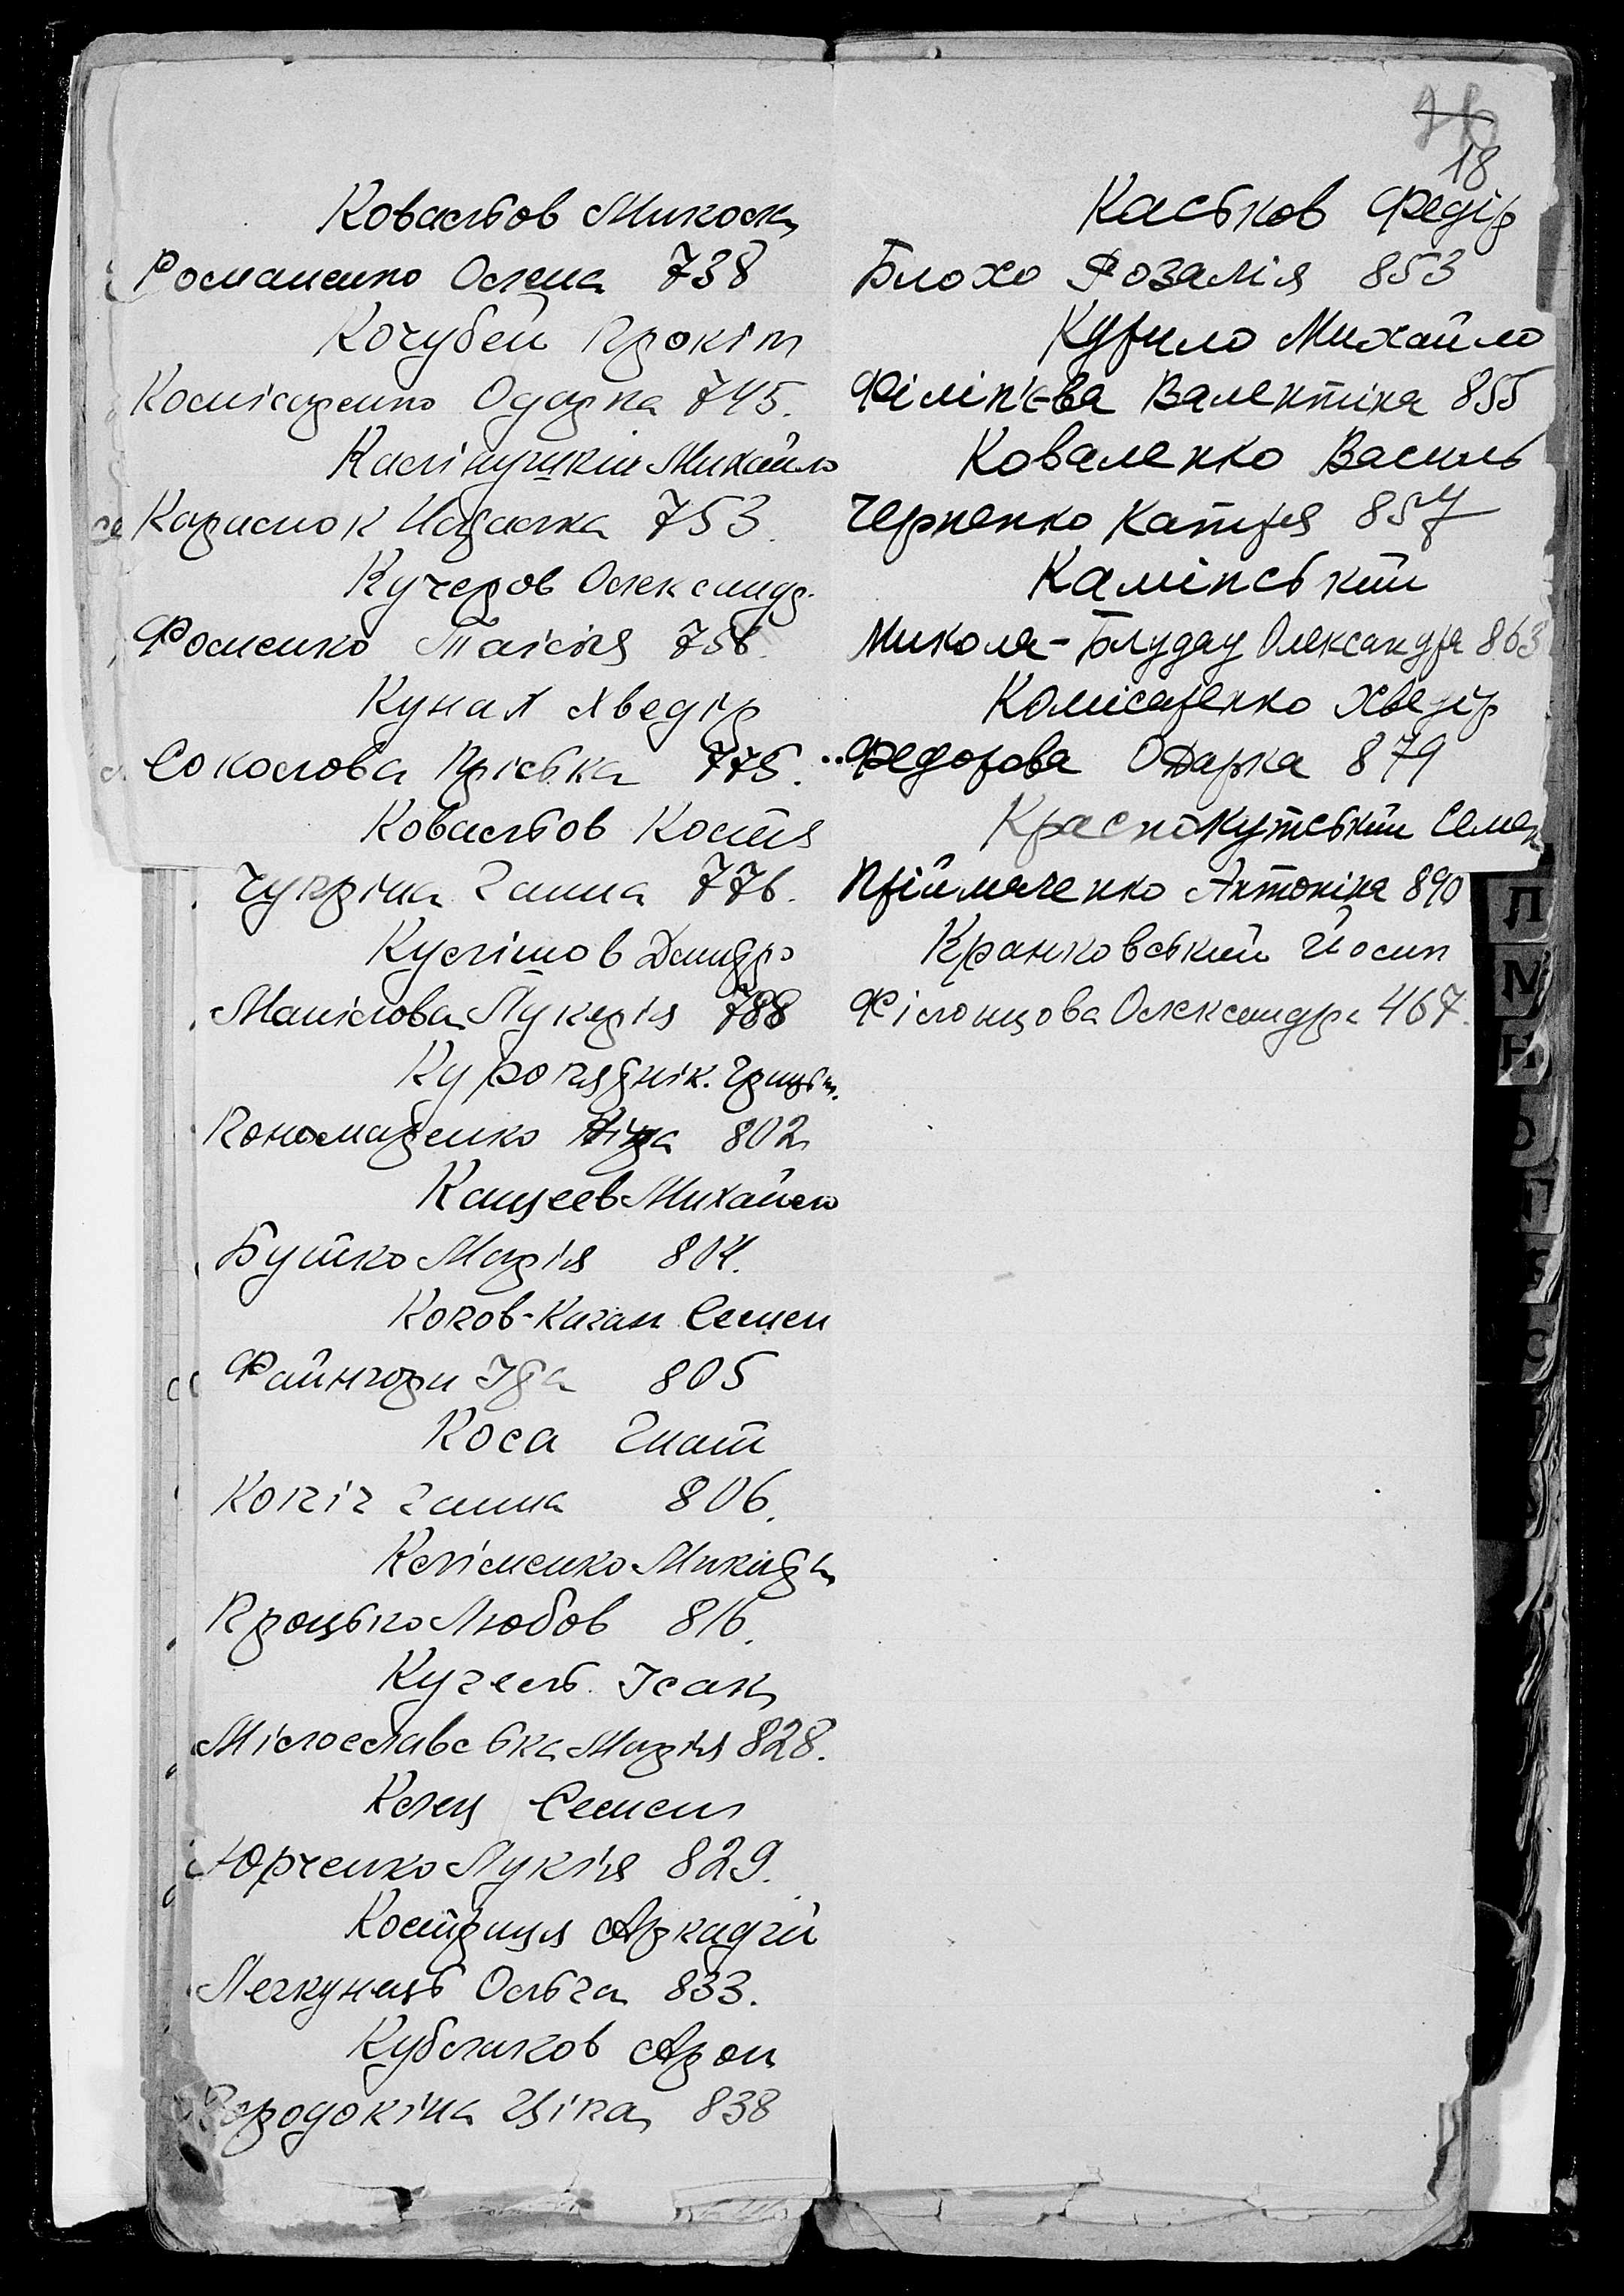 Ковальов Микола
Романенко Олена 738
Кочубей Прокіп
Комісаренко Одарка 745.
Калінушкін Михайло
Карасюк Наталка 753.
Кучеров Олександр.
Фоменко Таісія 756.
Кунах Хведір
Соколова Пріська 775.
Ковальов Костя
Чупріна Ганна 776.
Кулішов Дмидро
Манілова Лукерія 788
Куропяднік. Гриць.
Пономаренко 802
Кащеев Михайло
Бутко Марія 804.
Когов-Каган Семен
Файнгори Іда 805
Коса Гнат
Копіч Ганна 806.
Кліменко Микида
Процько Любов 816.
Кугель. Ісак
Мілославська Марія 828.
Клец Семен
Юрченко Лукія 829.
Костриця Аркадій
Легкунець Ольга 833.
Кубланов Арон
Городокіна Ціпа 838
18
Каськов Федір
Блохо Розалія 853
Курило Михайло
Філіп'єва Валентіна 855
Коваленко Василь
Черненко Катря 857
Камінський
Микола-Блудау Олександра 863
Комісаренко Хведір
Федорова Одарка 879
Краснокутський Семен
Пріймаченко Антоніна 890
Кранковський Йосип
Філонцова Олександра 467.
Л
М
Н
О
П
Р
С